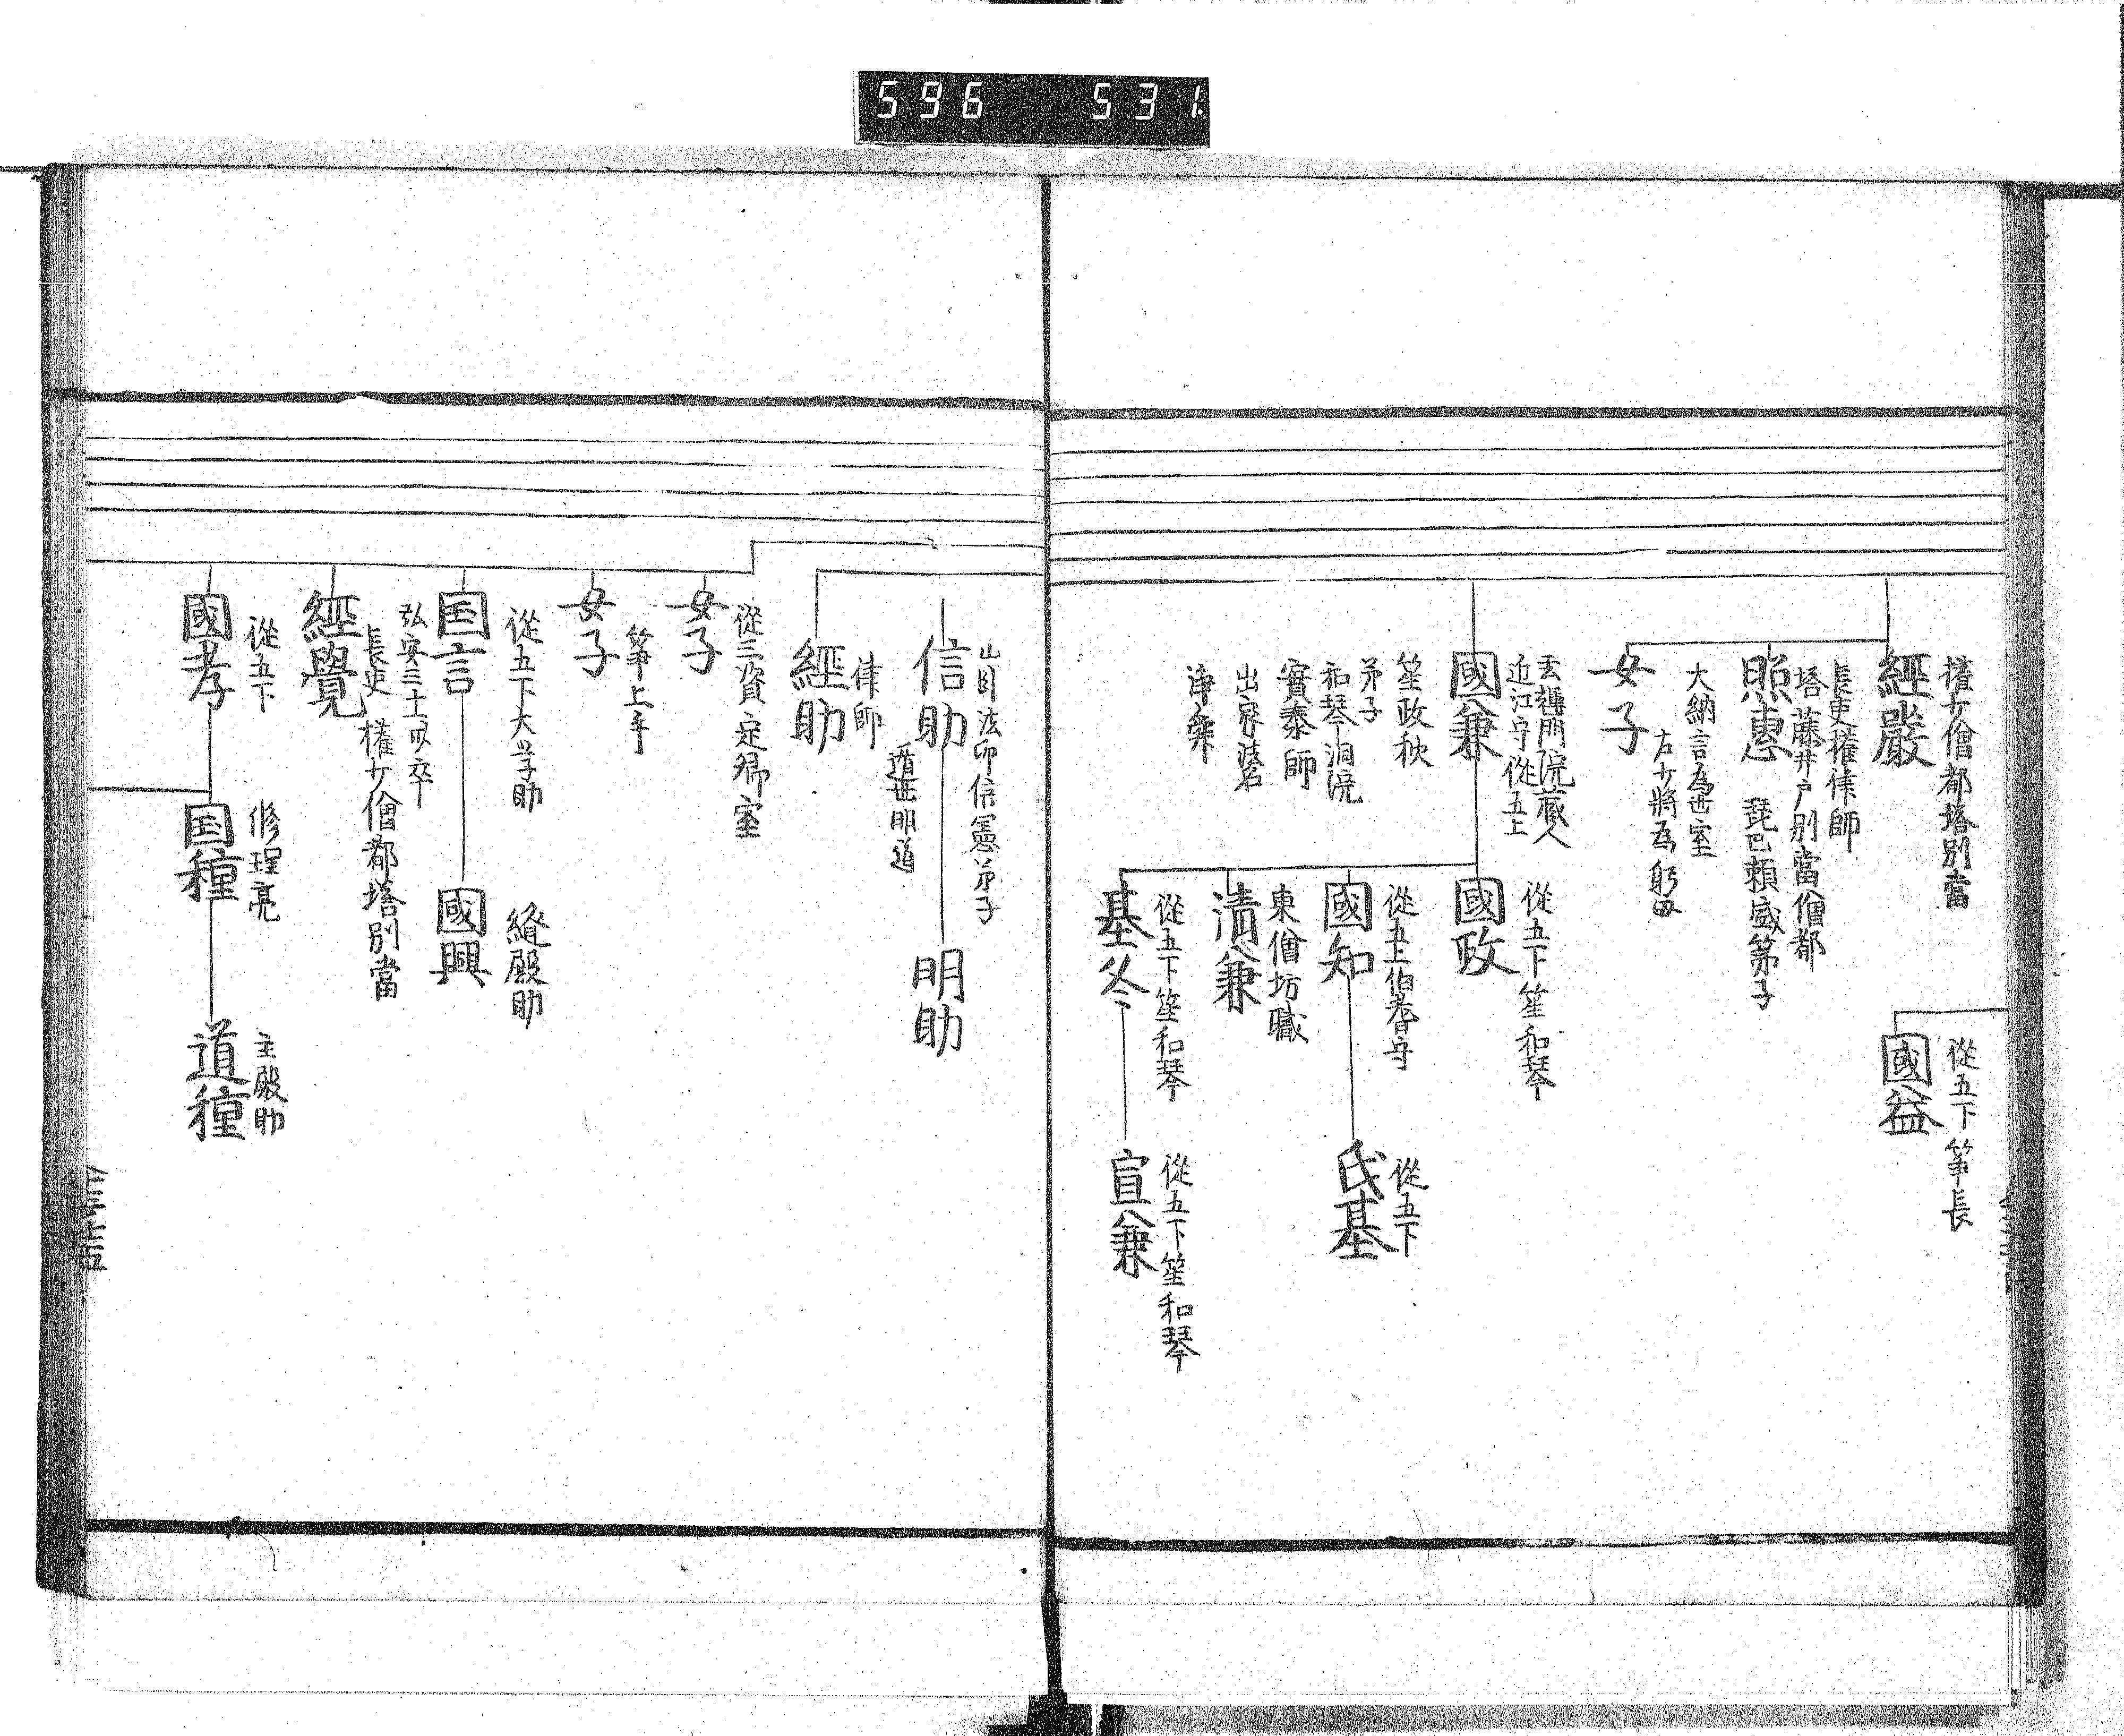 596 531
權少僧都塔別當
經嚴
長吏權律師
塔藤井戸別當僧都
照惠
琵巴賴盛第子
大納言為世室
左少將為躬母
女子
從五下 箏長
國益
蔵人
近江守從五上
國兼
笙政秋
弟子
和琴洞院
實泰師
出家法名
淨舜
從五下 笙 和琴
國政
從五上伯耆守
國知
從五下
氏基
東僧坊職
清兼
從五下笙和琴
基冬
從五下笙和琴
宣兼
法印信憲弟子
信助
遁世明道
明助
律師
經助
從三資定卿室
女子
箏上手
女子
從五下大学助
国言
縫殿助
國興
卒
長吏 權少僧都塔別當
經覺
從五下
國孝
修理亮
国種
主殿助
道種